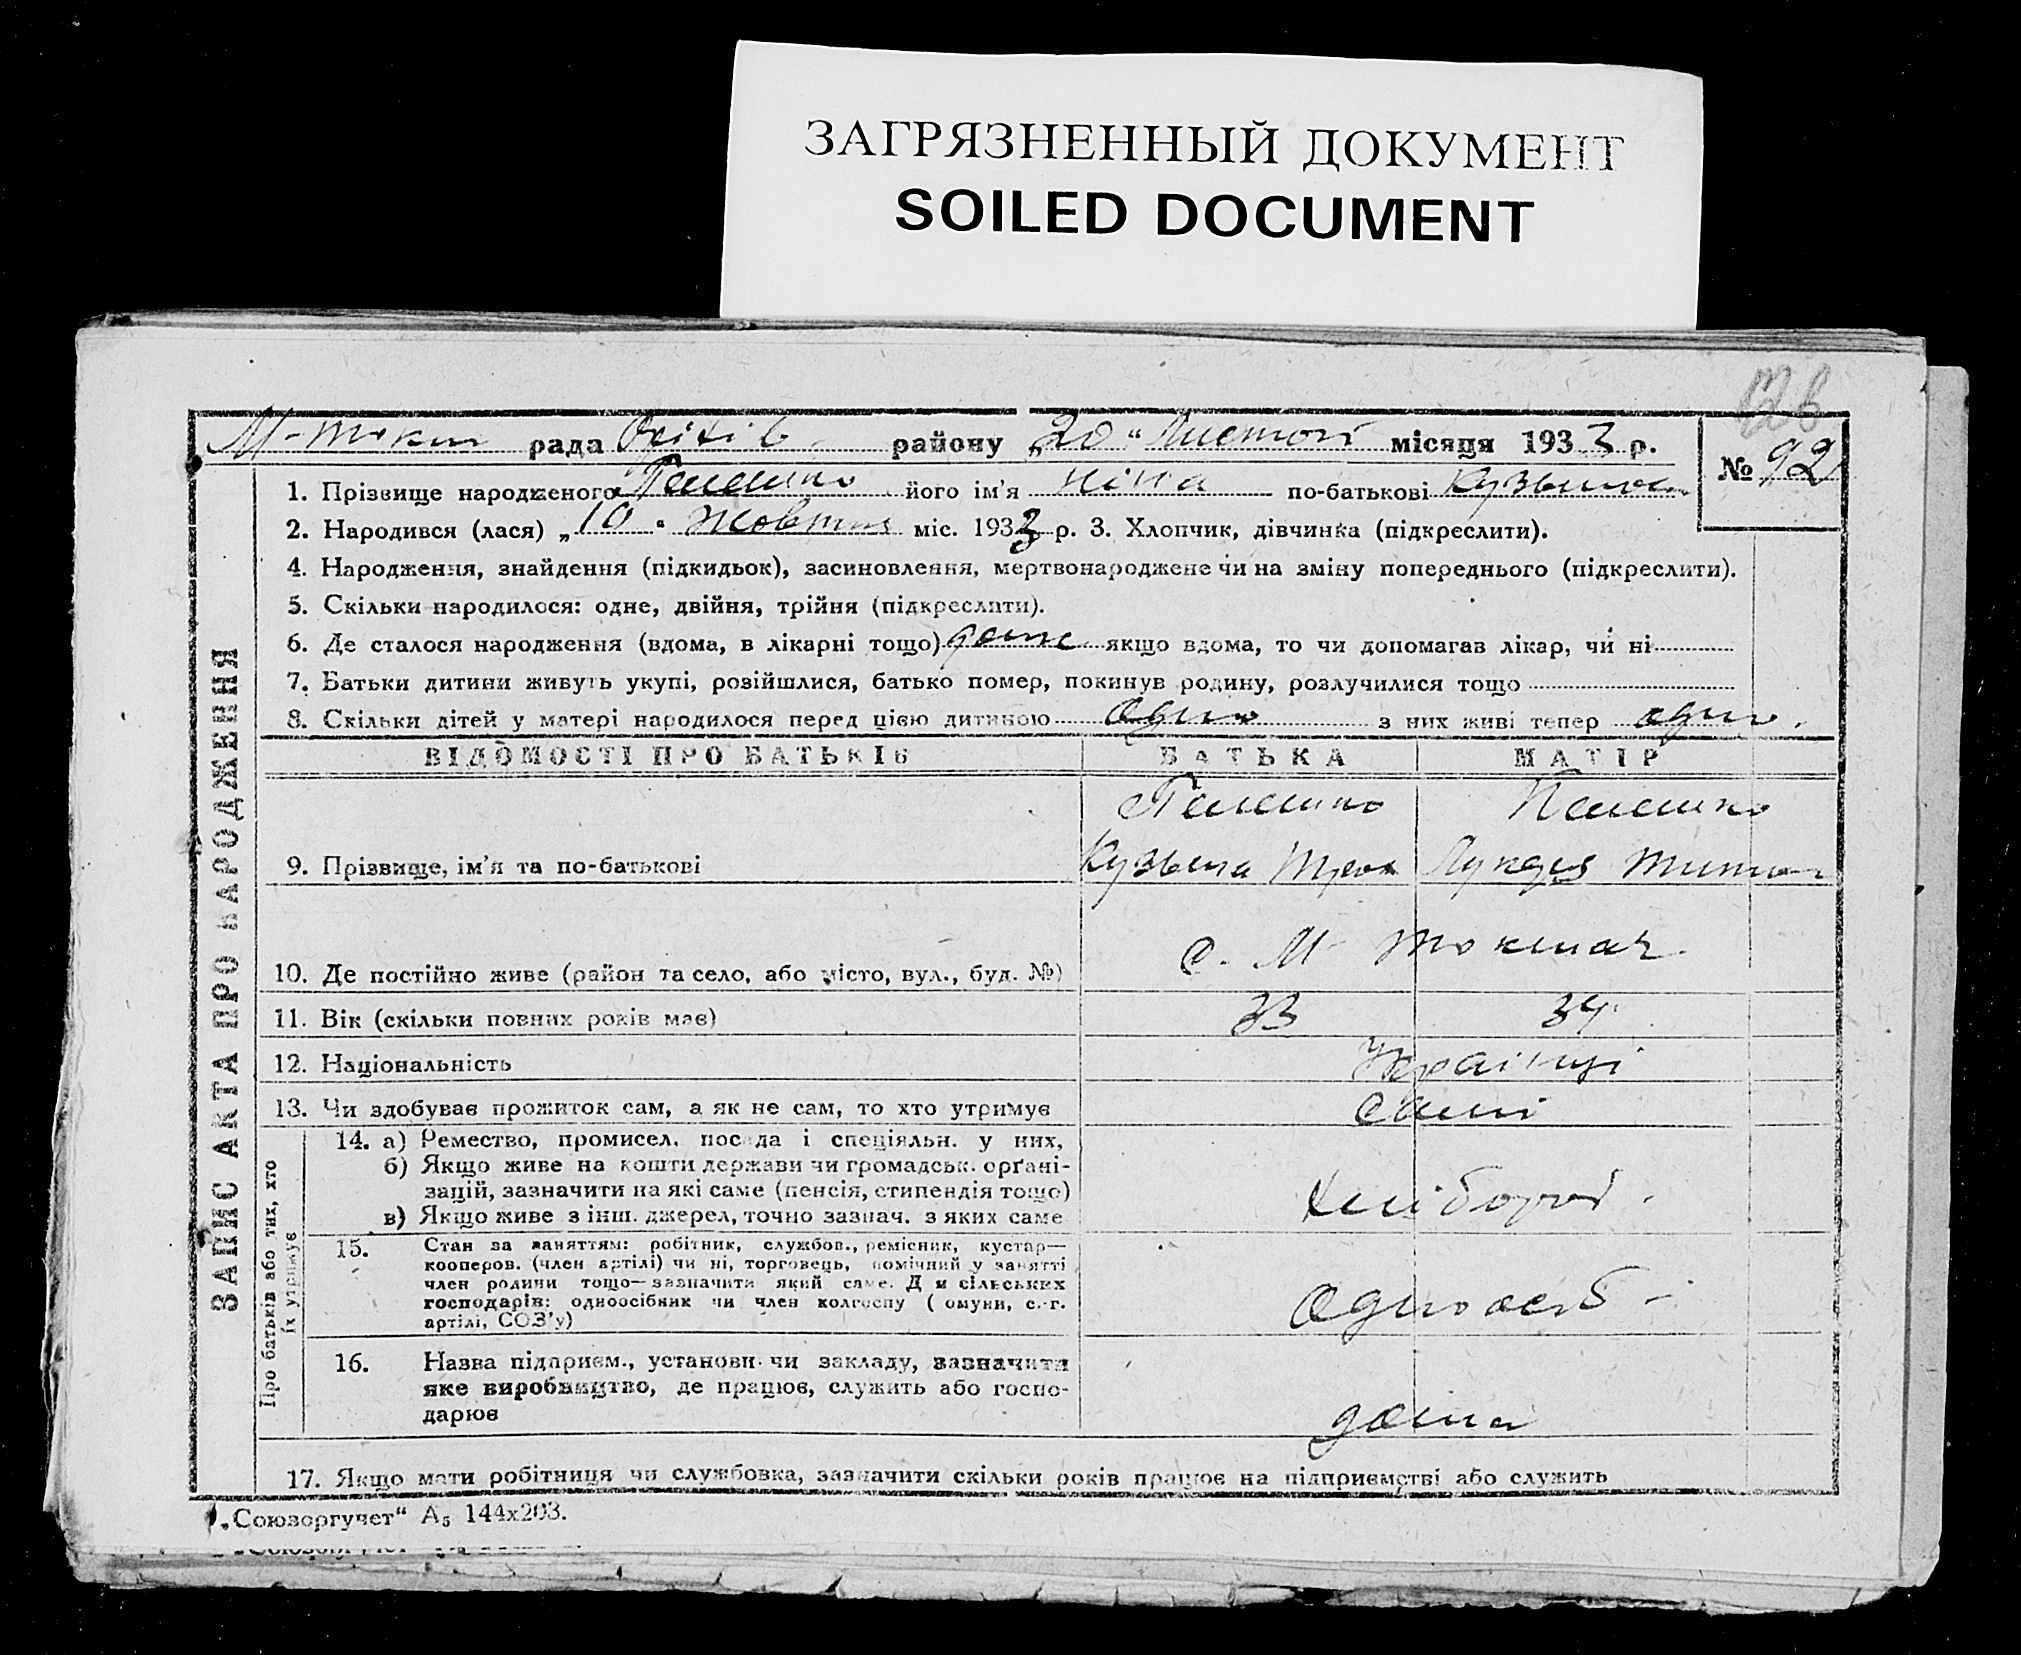 ЗАГРЯЗНЕННЫЙ ДОКУМЕНТ
SOILED DOCUMENT
М-токм рада Оріхів району „20“ листоп місяця 1933 р.
№ 92
1. Прізвище народженого його ім'я Ніна по-батькові Кузьмов
2. Народився (лася) „10“ жовтня міс. 1933 р. 3. Хлопчик, дівчинка (підкреслити).
4. Народження, знайдення (підкидьок), засиновлення, мертвонароджене чи на зміну попереднього (підкреслити).
5. Скільки народилося: одне, двійня, трійня (підкреслити).
6. Де сталося народження (вдома, в лікарні тощо) дома якщо вдома, то чи допомагав лікар, чи ні
7. Батьки дитини живуть укупі, розійшлися, батько помер, покинув родину, розлучилися тощо
8. Скільки дітей у матері народилося перед цією дитиною одно з них живі тепер одно.
ВІДОМОСТІ ПРО БАТЬКІВ БАТЬКА МАТІР
9. Прізвище, ім'я та по-батькові Кузьма
10. Де постійно живе (район та село, або місто, вул., буд. №) с. М- токмач
11. Вік (скільки повних років має) 33 34
12. Національність Українці
13. Чи здобуває прожиток сам, а як не сам, то хто утримує самі
14. а) Ремество, промисел, посада і спеціяльн. у них,
б) Якщо живе на кошти держави чи громадськ. орґані-
зацій, зазначити на які саме (пенсія, стипендія тощо)
в) Якщо живе з інш. джерел, точно зазнач. з яких саме
хлібороб.
15. Стан за заняттям: робітник, службов., ремісник, кустар—
кооперов. (член артілі) чи ні, торговець, помічний у занятті
член родини тощо—зазначити який саме. Для сільських
господарів: одноосібник чи член колгоспу (комуни, с.-г.
артілі, СОЗ'у)
одноосіб -
16. Назва підприєм., установи чи закладу, зазначити
яке виробництво, де працює, служить або госпо-
дарює
дома
17. Якщо мати робітниця чи службовка, зазначити скільки років працює на підприємстві або служить
ЗАПИС АКТА ПРО НАРОДЖЕННЯ
Про батьків або тих, хто
їх утримує
„Союзоргучет“ А₅ 144х203.